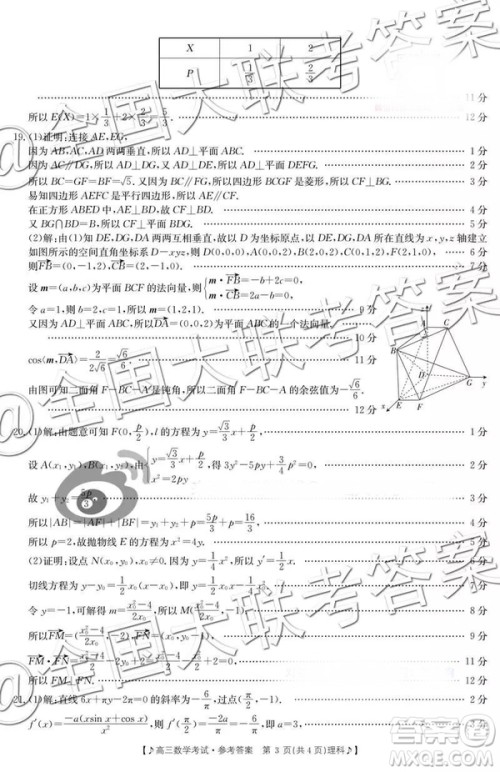 X 1 2
P 1/3 2/3
11 分
所以 E(X)=1×1/3+2×2/3=5/3. 12 分
19. (1)证明:连接 AE,EG,
因为 AB,AC,AD 两两垂直,所以 AD⊥平面 ABC. 1 分
因为 AC∥DG,所以 AD⊥DG,又 AD⊥DE,所以 AD⊥平面 DEFG. 2 分
所以 BC=GF=BF=√5. 又因为 BC∥FG,所以四边形 BCGF 是菱形,所以 CF⊥BG. 3 分
易知四边形 AEFC 是平行四边形,所以 AE∥CF.
在正方形 ABED 中,AE⊥BD,故 CF⊥BD. 4 分
又 BG∩BD=B,所以 CF⊥平面 BDG. 5 分
(2)解:由(1)知 DE,DG,DA 两两互相垂直,故以 D 为坐标原点,以 DE,DG,DA 所在直线为 x,y,z 轴建立
如图所示的空间直角坐标系 D-xyz,则 D(0,0,0),A(0,0,2),B(2,0,2),C(0,1,2),F(2,1,0). 6 分
则FB=(0,-1,2),CB=(2,-1,0). 7 分
设 m=(a,b,c)为平面 BCF 的法向量,则{m·FB=-b+2c=0, m·CB=2a-b=0,
令 a=1,则 b=2,c=1,所以 m=(1,2,1). 9 分
又因为 AD⊥平面 ABC,所以 DA=(0,0,2)为平面 ABC 的一个法向量,
10 分
cos⟨m,DA⟩=2/2√6=√6/6, 11 分
由图可知二面角 F-BC-A 是钝角,所以二面角 F-BC-A 的余弦值为-√6/6.
12 分
20. (1)解:由题意可知 F(0,p/2),l 的方程为 y=√3/3x+p/2, 1 分
设 A(x₁,y₁),B(x₂,y₂),由{y=√3/3x+p/2, x²=2py 得 3y²-5py+3p²/4=0, 2 分
故 y₁+y₂=5p/3, 3 分
所以|AB|=|AF|+|BF|=y₁+y₂+p=5p/3+p=16/3, 4 分
所以 p=2,故抛物线 E 的方程为 x²=4y. 5 分
(2)证明:设点 N(x₀,y₀)(x₀≠0),因为 y=1/4x²,所以 y′=1/2x. 6 分
切线方程为 y-y₀=1/2x₀(x-x₀),即 y=1/2x₀x-1/4x₀². 7 分
令 y=-1,可解得 x=(x₀²-4)/2x₀,所以 M((x₀²-4)/2x₀,-1). 8 分
9 分
10 分
12 分
21. (1)解:直线 6x+πy-2π=0 的斜率为-6/π,过点(π/2,-1). 1 分
f′(x)=-a(xsin x+cos x)/x²,则 f′(π/2)=-2a/π=-6/π,即 a=3, 3 分
♪高三数学考试·参考答案 第 3 页(共 4 页)理科♪
@全国大联考答案